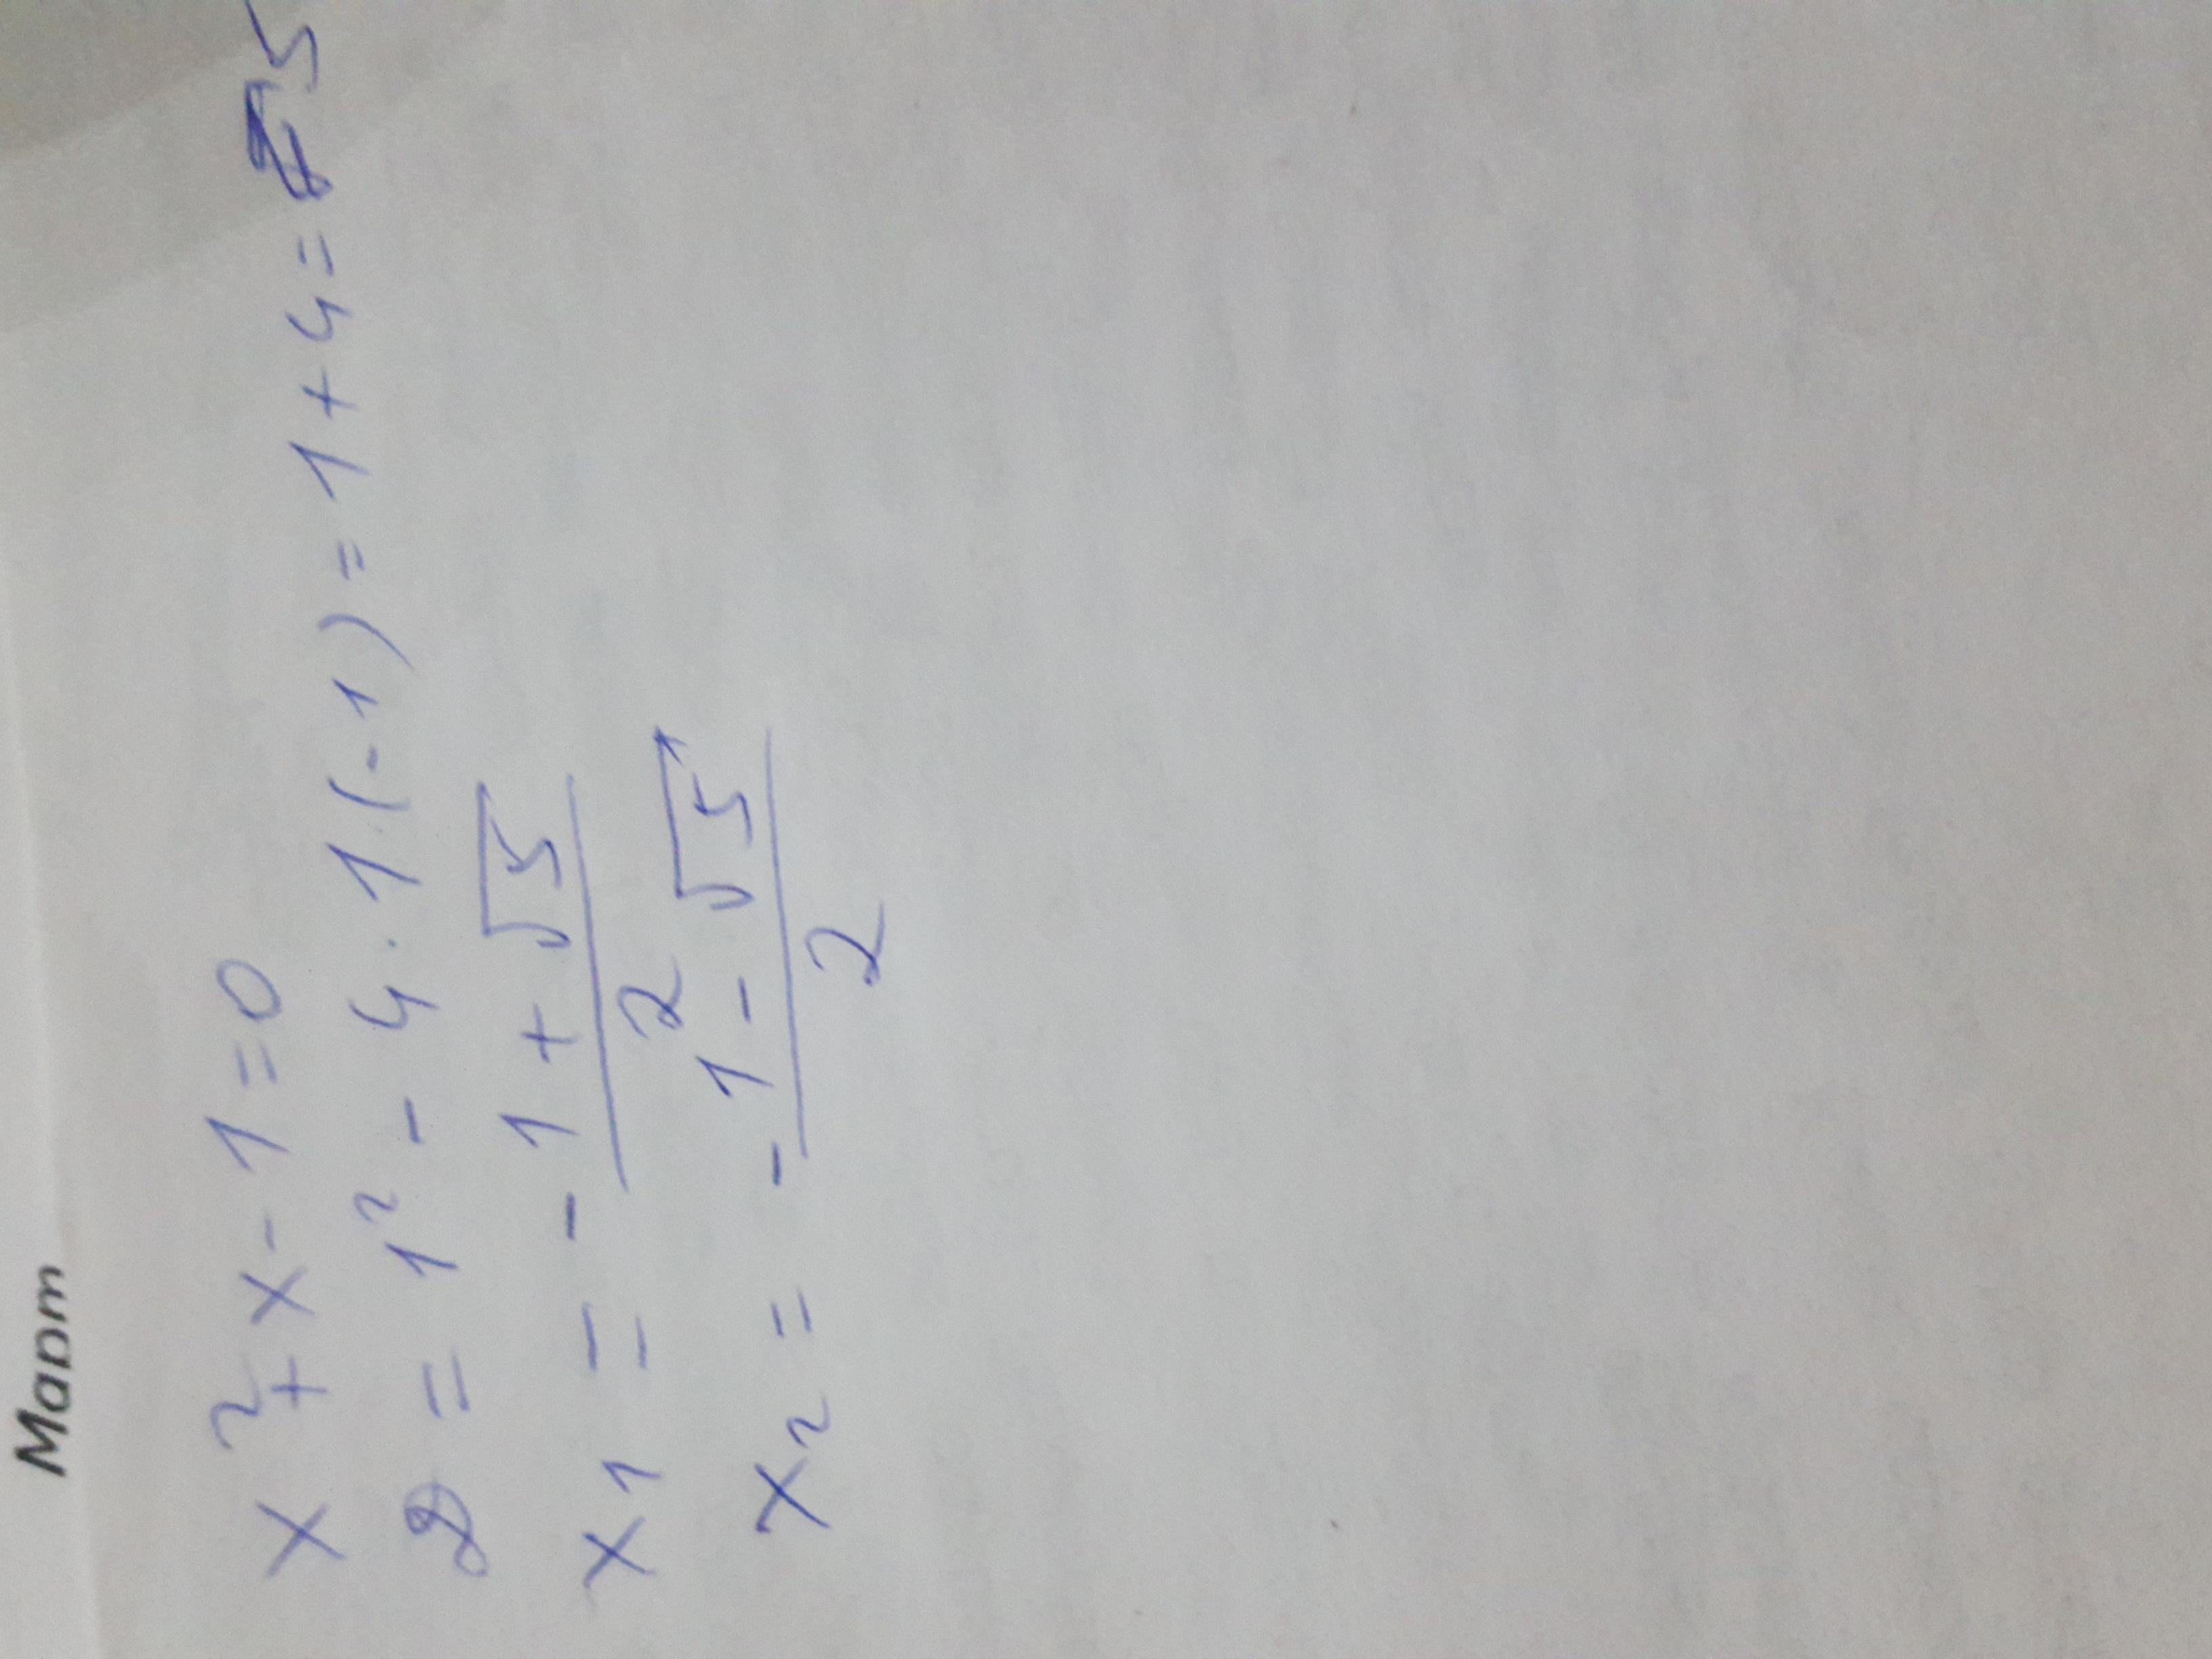 Март
x² + x - 1 = 0
D = 1² - 4 · 1 · (-1) = 1 + 4 = 5
x₁ = (-1 + √5) / 2
x₂ = (-1 - √5) / 2